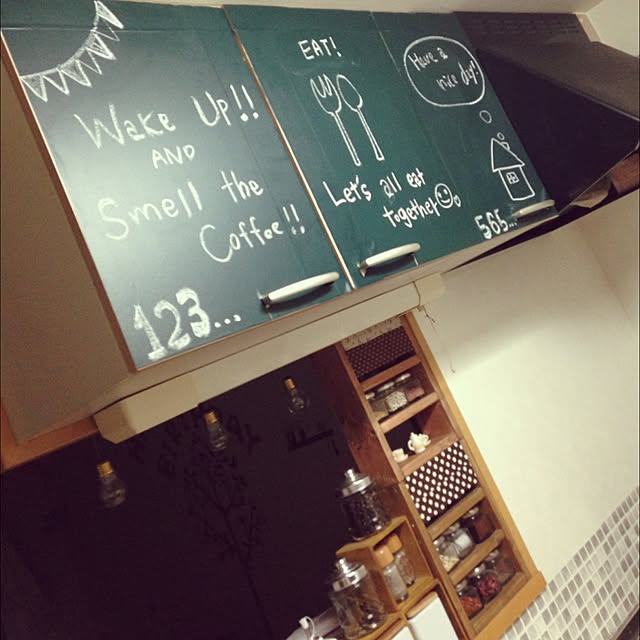 Wake Up!!
AND
Smell the
Coffee!!
123...
EAT!
Let's all eat
together
Have a
nice day!
565...